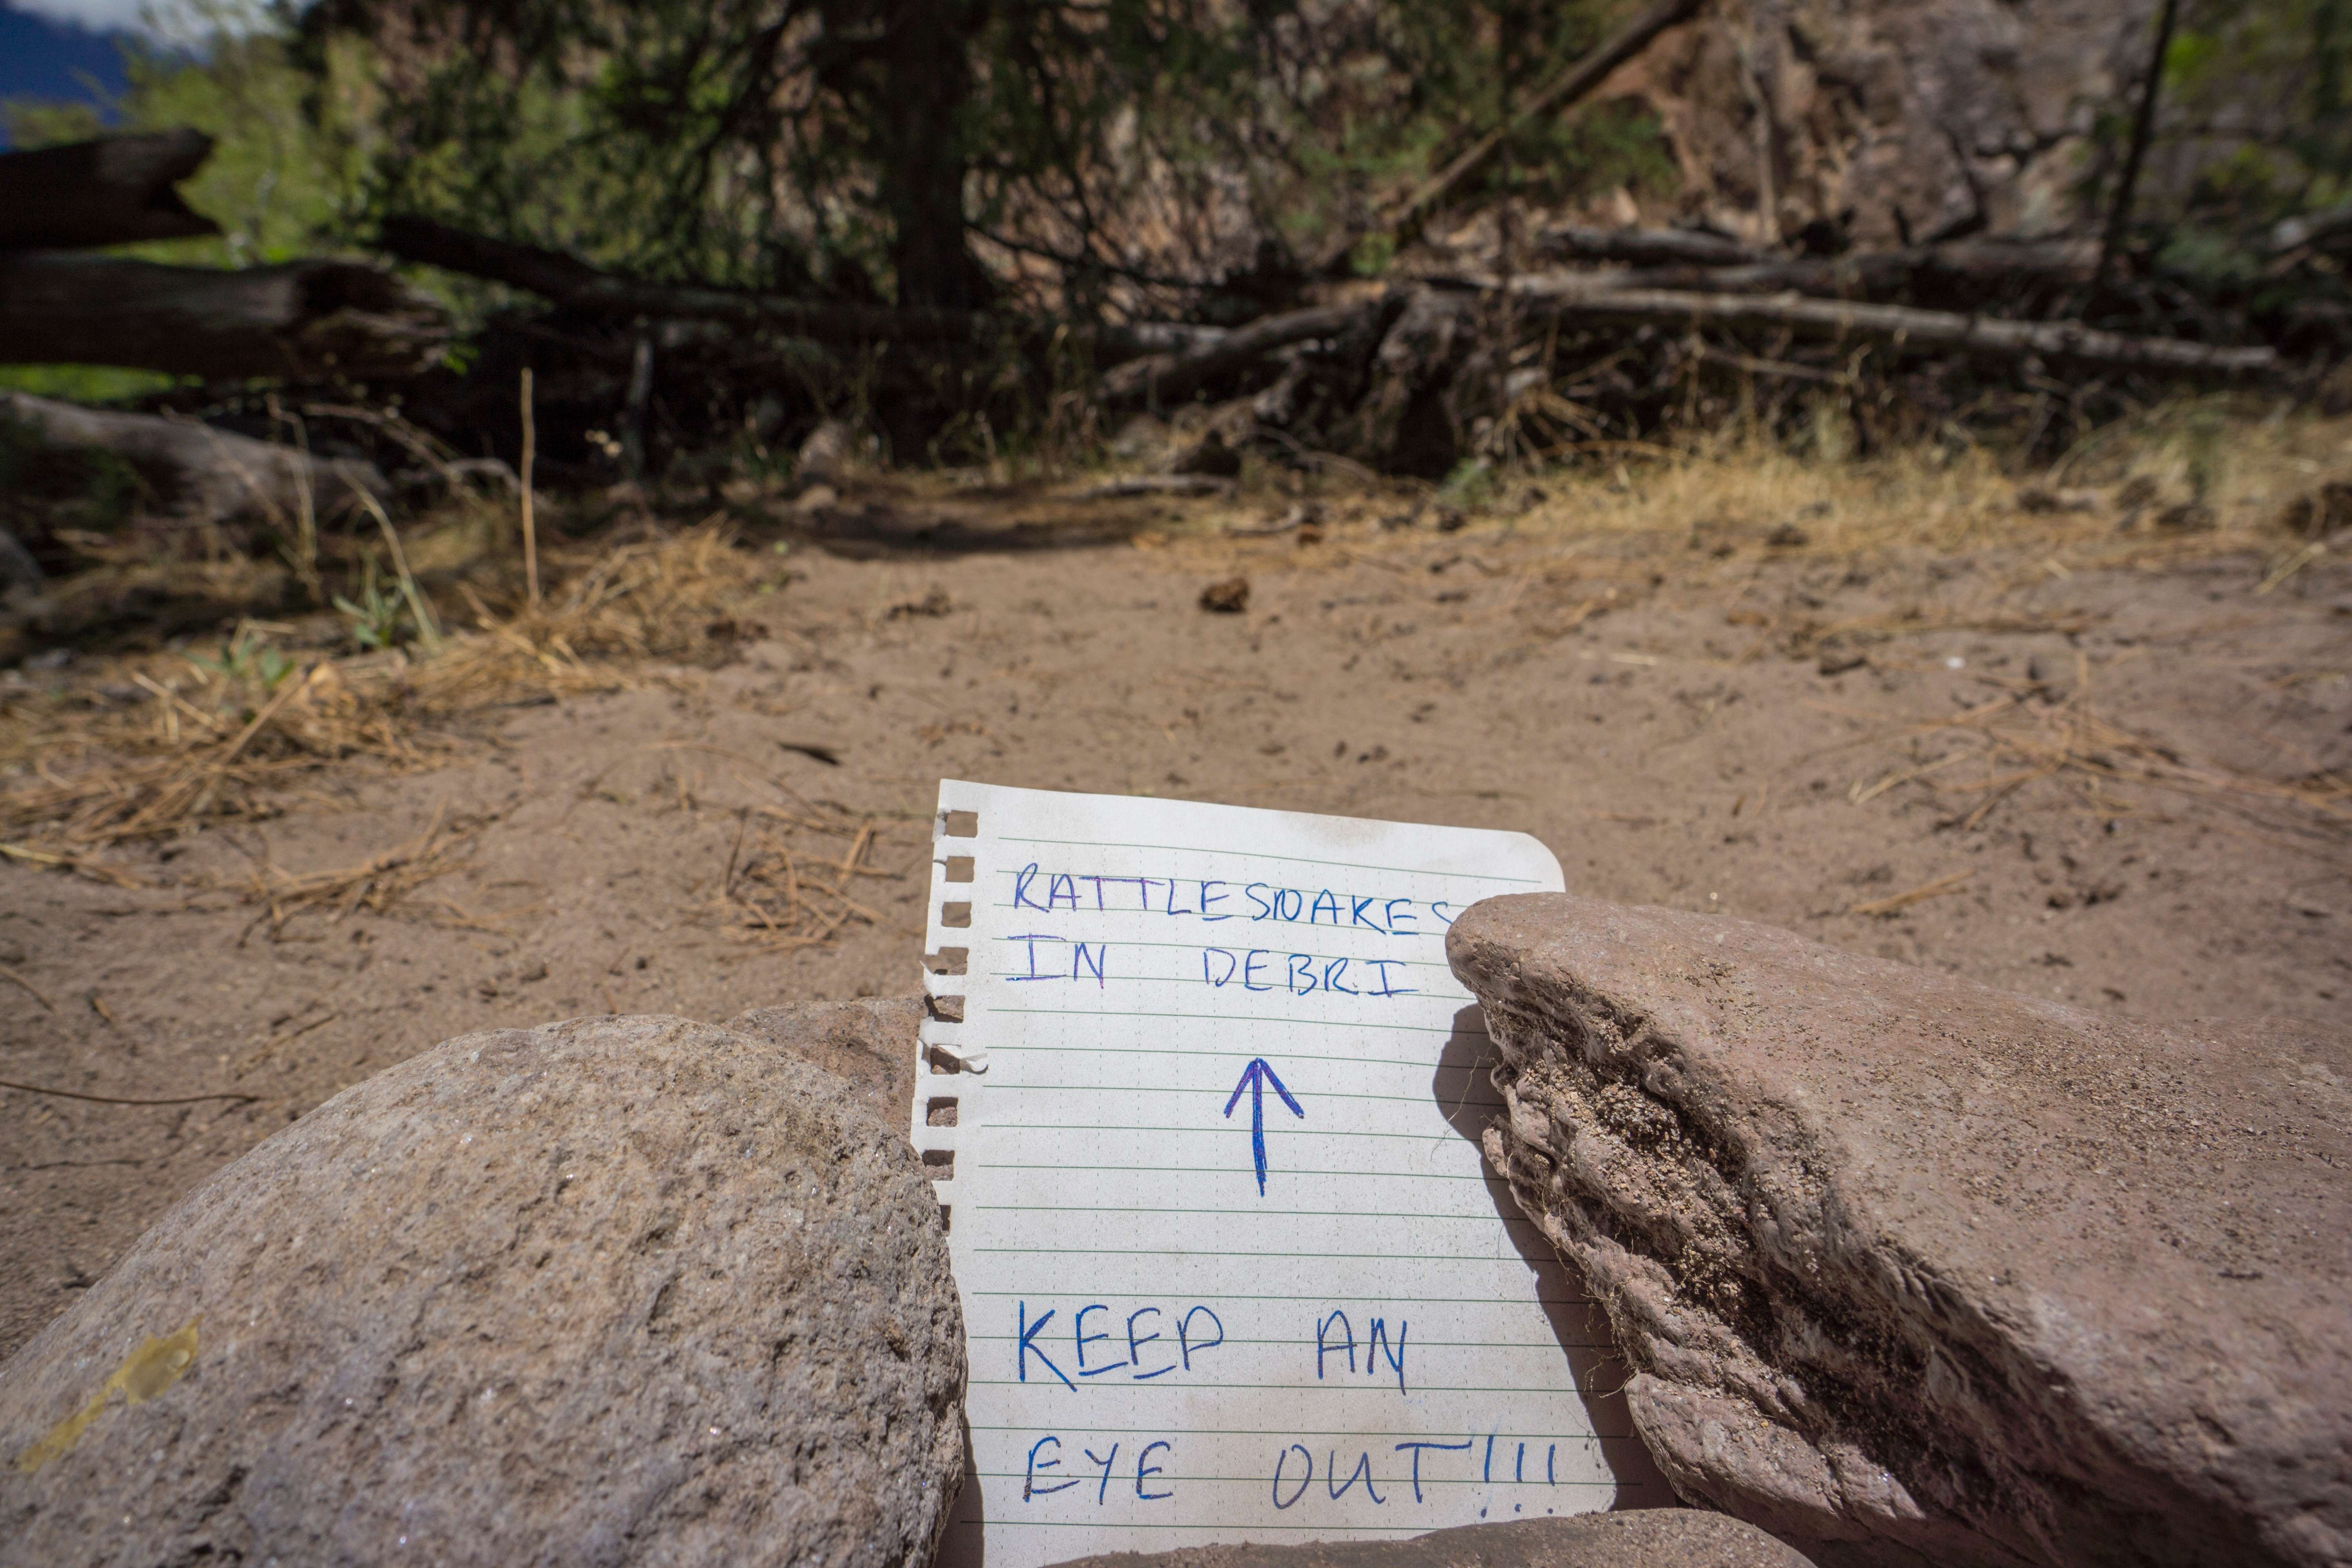 RATTLESNAKES
IN DEBRI
↑
KEEP AN
EYE OUT!!!